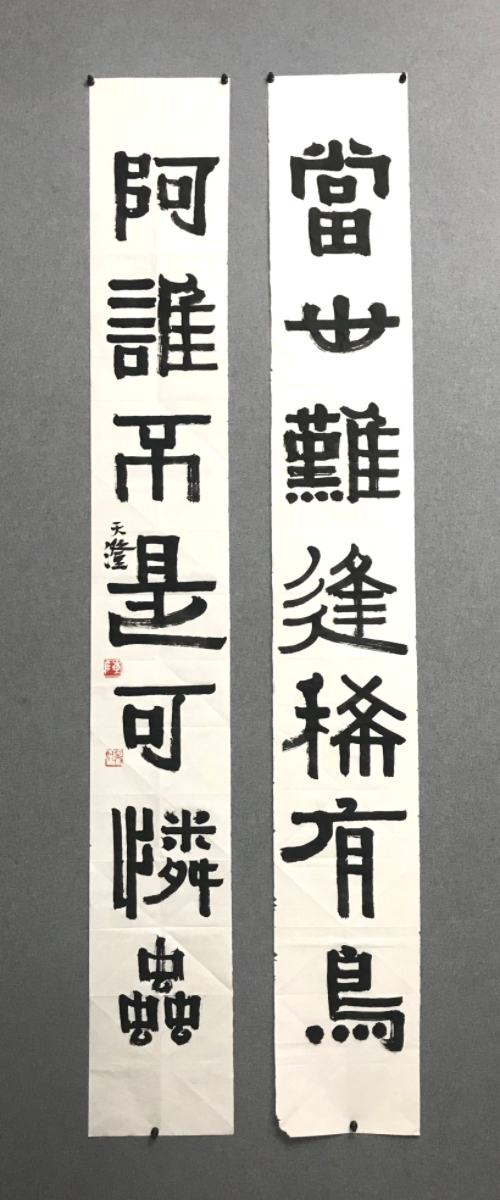 當世難逢稀有鳥
阿誰不是可憐蟲
天澄